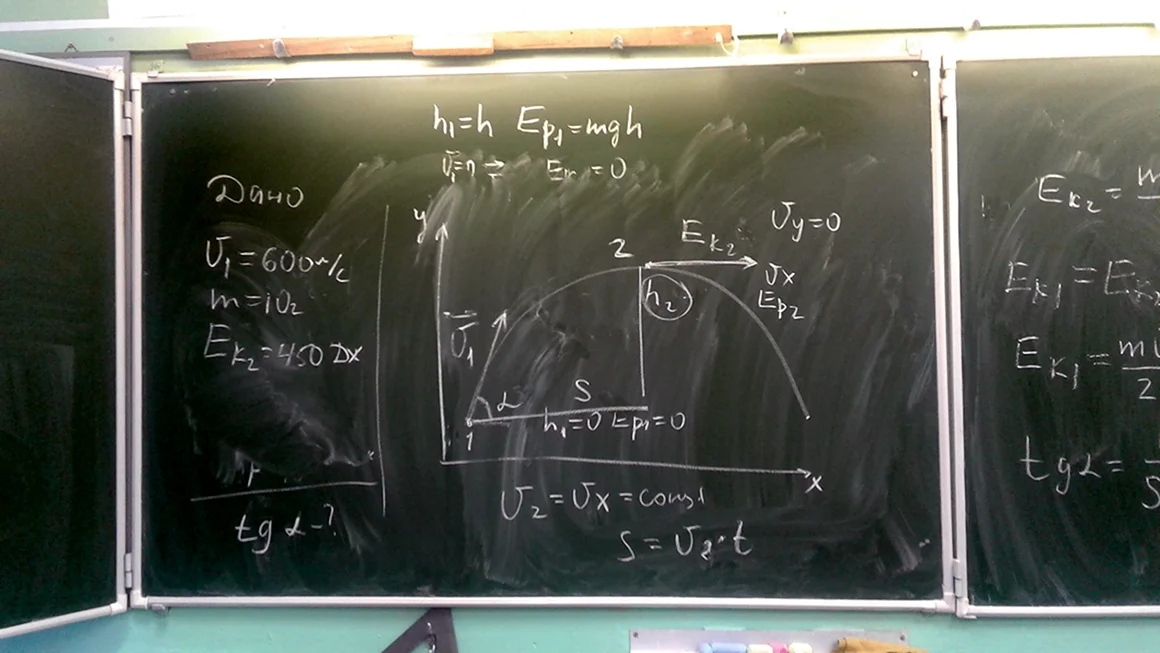 h₁=h Eₚ₁=mgh
=0
Дано
υ₁=600м/с
m=10г
Eₖ₂=450 Дж
tg α-?
y
υ⃗₁
α
1
S
h₁=0 Eₚ₁=0
2
h₂
Eₖ₂
υy=0
υx
Eₚ₂
x
υ₂=υx=const
S=υ₂·t
Eₖ₂=
Eₖ₁=Eₖ
Eₖ₁=mυ/2
tgα=